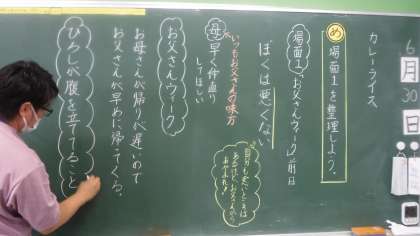 6月30日
カレーライス
め 場面1を整理しよう。
場面1 お父さんウィーク前日
ぼくは悪くない
いつもお父さんの味方
母 早く仲直り
してほしい
お父さんウィーク
お母さんが帰りが遅いので
お父さんが早めに帰ってくる。
ひろしが腹を立ててること